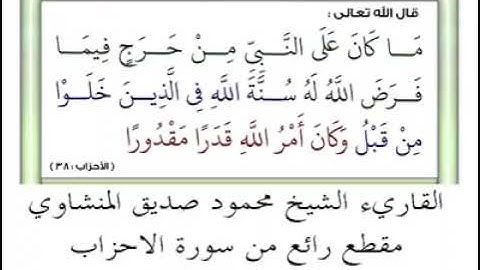 قال الله تعالى :
مَا كَانَ عَلَى النَّبِيِّ مِنْ حَرَجٍ فِيمَا
فَرَضَ اللَّهُ لَهُ سُنَّةَ اللَّهِ فِي الَّذِينَ خَلَوْا
مِنْ قَبْلُ وَكَانَ أَمْرُ اللَّهِ قَدَرًا مَقْدُورًا
(الأحزاب :٣٨)
القاريء الشيخ محمود صديق المنشاوي
مقطع رائع من سورة الاحزاب